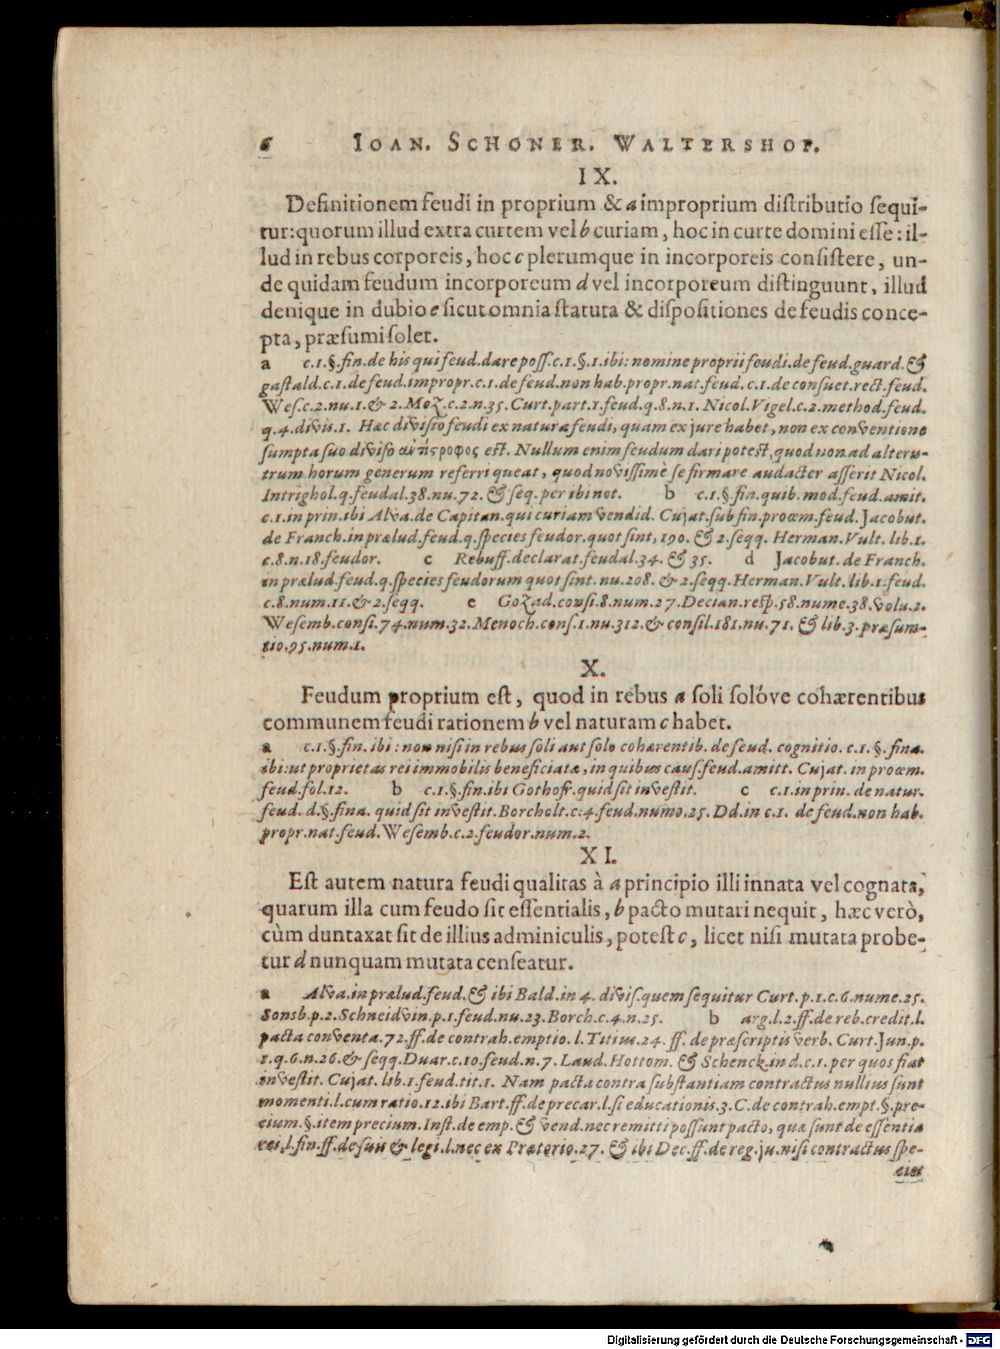 6 IOAN. SCHONER. WALTERSHOF.
IX.
Definitionem feudi in proprium & a improprium distributio sequi-
tur: quorum illud extra curtem vel b curiam, hoc in curte domini esse: il-
lud in rebus corporeis, hoc c plerumque in incorporeis consistere, un-
de quidam feudum incorporeum d vel incorporeum distinguunt, illud
denique in dubio e sicut omnia statuta & dispositiones de feudis conce-
pta, præsumi solet.
a c.1.§.fin.de his qui feud.dare poss.c.1.§.1.ibi: nomine proprii feudi.de feud.guard.&
gastald.c.1.de feud.impropr.c.1.de feud.non hab.propr.nat.feud.c.1.de consuet.rect.feud.
Wes.c.2.nu.1.& 2.Moz.c.2.n.35.Curt.part.1.feud.q.8.n.1. Nicol.Vigel.c.2.method.feud.
q.4.divis.1. Hæc divisio feudi ex natura feudi, quam ex jure habet, non ex conventione
sumpta suo diviso ἀντίςροφος est. Nullum enim feudum dari potest, quod non ad alteru-
trum horum generum referri queat, quod novissimè se firmare audacter asserit Nicol.
Intrighol.q.feudal.38.nu.72. & seq.per ibi not. b c.1.§.fin.quib.mod.feud.amit.
c.1.in prin.ibi Alva.de Capitan.qui curiam vendid. Cujat.sub fin.proœm.feud.Jacobut.
de Franch.in prælud.feud.q.species feudor.quot sint, 190. & 2.seqq. Herman.Vult. lib.1.
c.8.n.18.feudor. c Rebuff.declarat.feudal.34. & 35. d Jacobut.de Franch.
in prælud.feud.q.species feudorum quot sint.nu.208. & 2.seqq.Herman.Vult.lib.1.feud.
c.8.num.11.& 2.seqq. e Gozad.consi.8.num.27.Decian.resp.58.nume.38.volu.2.
Wesemb.consi.74.num.32.Menoch.cons.1.nu.312.& consil.181.nu.71. & lib.3.præsum-
tio.95.num.1.
X.
Feudum proprium est, quod in rebus a soli solóve cohærentibus
communem feudi rationem b vel naturam c habet.
a c.1.§.fin.ibi: non nisi in rebus soli aut solo cohærentib.de feud. cognitio. c.1.§.fina.
ibi: ut proprietas rei immobilis beneficiatæ, in quibus caus.feud.amitt. Cujat.in proœm.
feud.fol.12. b c.1.§.fin.ibi Gothofr.quid sit investit. c c.1.in prin. de natur.
feud. d.§.fina. quid sit investit.Borcholt.c.4.feud.numo.25.Dd.in c.1. de feud.non hab.
propr.nat.feud.Wesemb.c.2.feudor.num.2.
XI.
Est autem natura feudi qualitas à a principio illi innata vel cognata,
quarum illa cum feudo sit essentialis, b pacto mutari nequit, hæc verò,
cùm duntaxat sit de illius adminiculis, potest c, licet nisi mutata probe-
tur d nunquam mutata censeatur.
a Alva.in prælud.feud.& ibi Bald.in 4. divis.quem sequitur Curt.p.1.c.6.nume.25.
Sonsb.p.2.Schneidvin.p.1.feud.nu.23.Borch.c.4.n.25. b arg.l.2.ff.de reb.credit.l.
pacta conventa.72.ff.de contrah.emptio.l.Titius.24. ff. de præscriptis verb. Curt.Jun.p.
1.q.6.n.26.& seqq.Duar.c.10.feud.n.7.Laud.Hottom. & Schenck.in d.c.1.per quos fiat
investit. Cujat.lib.1.feud.tit.1. Nam pacta contra substantiam contractus nullius sunt
momenti.l.cum ratio.12.ibi Bart.ff.de precar.l.si educationis.3.C.de contrah.empt.§.pre-
cium.§.item precium.Inst.de emp.& vend.nec remitti possunt pacto, quæ sunt de essentia
rei,l.fin.ff.de suis & legi.l.nec ex Prætorio.27. & ibi Dec.ff.de reg.ju.nisi contractus spe-
cies
Digitalisierung gefördert durch die Deutsche Forschungsgemeinschaft - DFG